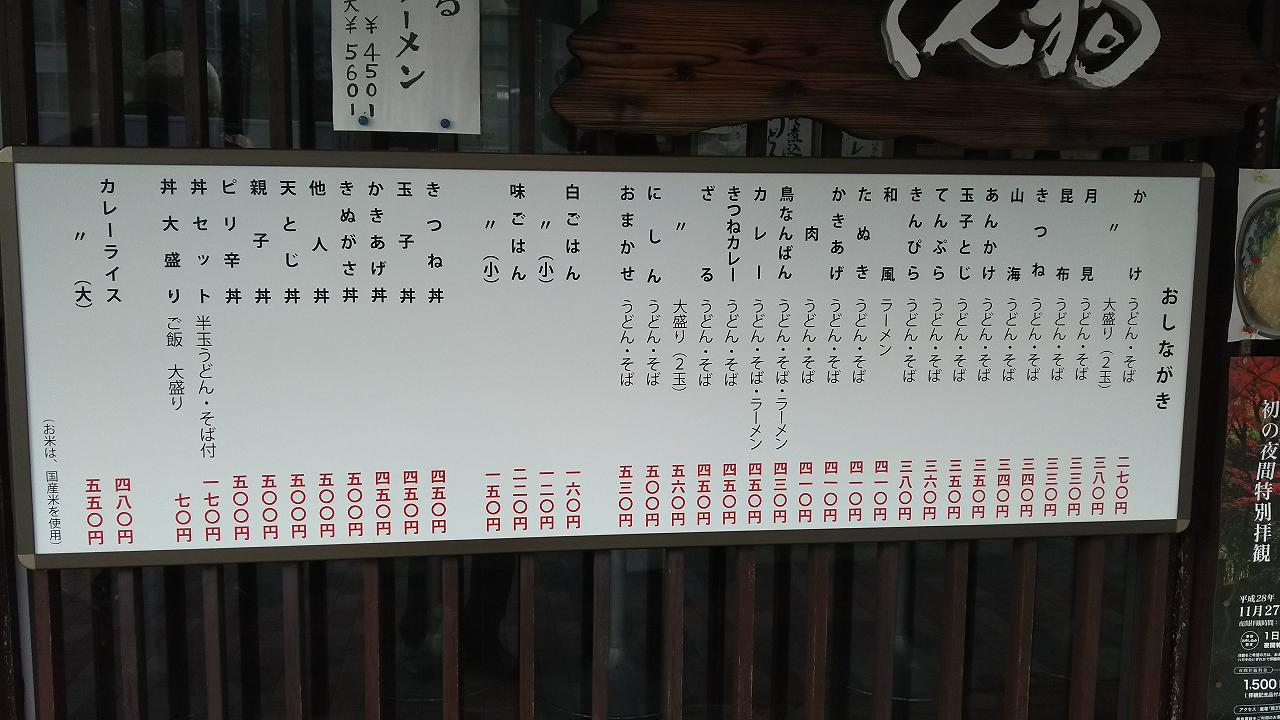 る
ーメン
￥450
大￥560
おしながき
かけ うどん・そば 二七〇円
〃 大盛り（2玉） 三八〇円
月見 うどん・そば 三三〇円
昆布 うどん・そば 三三〇円
きつね うどん・そば 三四〇円
山海 うどん・そば 三四〇円
あんかけ うどん・そば 三五〇円
玉子とじ うどん・そば 三五〇円
てんぷら うどん・そば 三六〇円
きんぴら うどん・そば 三八〇円
和風 ラーメン 四一〇円
たぬき うどん・そば 四一〇円
かきあげ うどん・そば 四一〇円
肉 うどん・そば 四一〇円
鳥なんばん うどん・そば・ラーメン 四三〇円
カレー うどん・そば・ラーメン 四五〇円
きつねカレー うどん・そば 四五〇円
ざる うどん・そば 四五〇円
〃 大盛り（2玉） 五六〇円
にしん うどん・そば 五〇〇円
おまかせ うどん・そば 五三〇円
白ごはん 一六〇円
〃（小） 一二〇円
味ごはん 二二〇円
〃（小） 一五〇円
きつね丼 四五〇円
玉子丼 四五〇円
かきあげ丼 四五〇円
きぬがさ丼 五〇〇円
他人丼 五〇〇円
天とじ丼 五〇〇円
親子丼 五〇〇円
ピリ辛丼 五〇〇円
丼セット 半玉うどん・そば付 一七〇円
丼大盛り ご飯 大盛り 七〇円
カレーライス 四八〇円
〃（大） 五五〇円
（お米は、国産米を使用）
初の夜間特別拝観
平成28年
11月27
1日
1,500